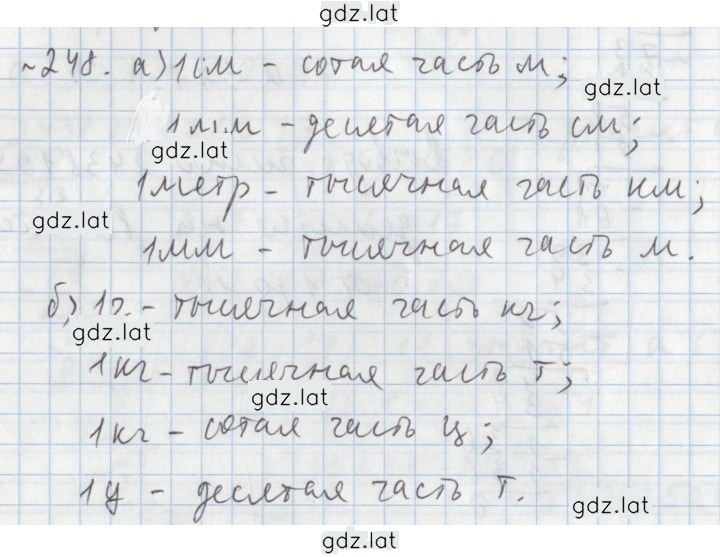 gdz.lat
№248. а) 1 см – сотая часть м;
gdz.lat
1 мм – десятая часть см;
gdz.lat
1 метр – тысячная часть км;
gdz.lat
1 мм – тысячная часть м.
б) 1г. – тысячная часть кг;
gdz.lat
1 кг – тысячная часть т;
gdz.lat
1 кг – сотая часть ц;
1 ц – десятая часть т.
gdz.lat
gdz.lat